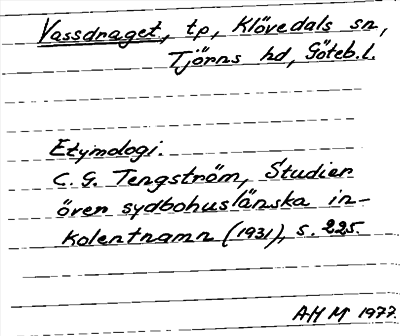 Vassdraget, tp, Klövedals sn,
Tjörns hd, Göteb.l.
Etymologi.
C. G. Tengström, Studier
över sydbohuslänska in-
kolentnamn (1931), s. 225.
AHM 1977.